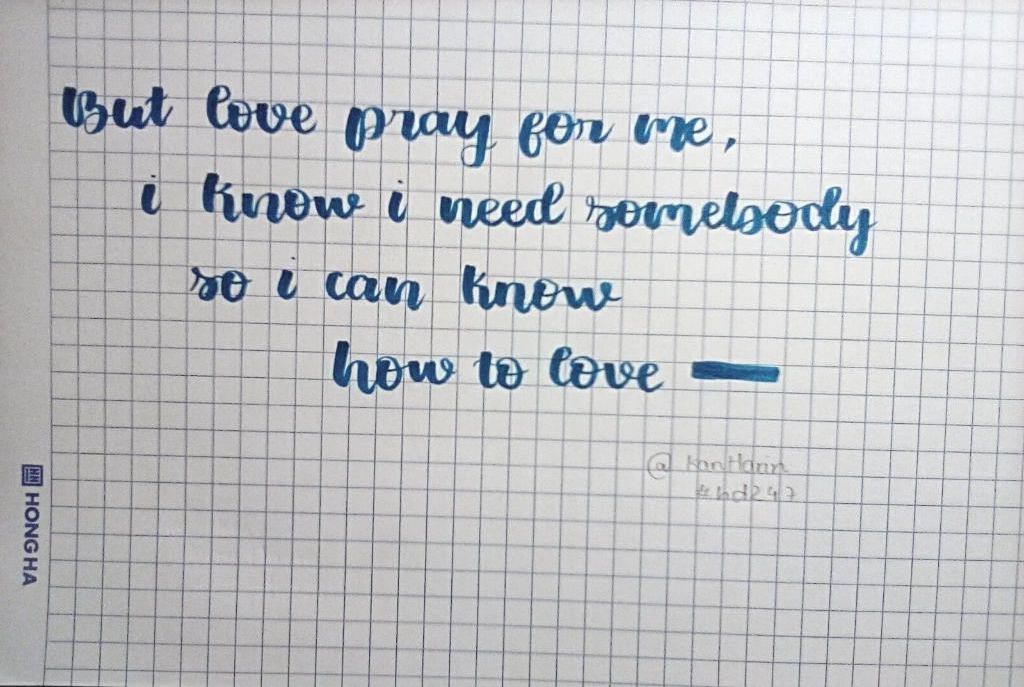 But love pray for me,
i know i need somebody
so i can know
how to love —
@ KanHarin
#hd247
HONG HA